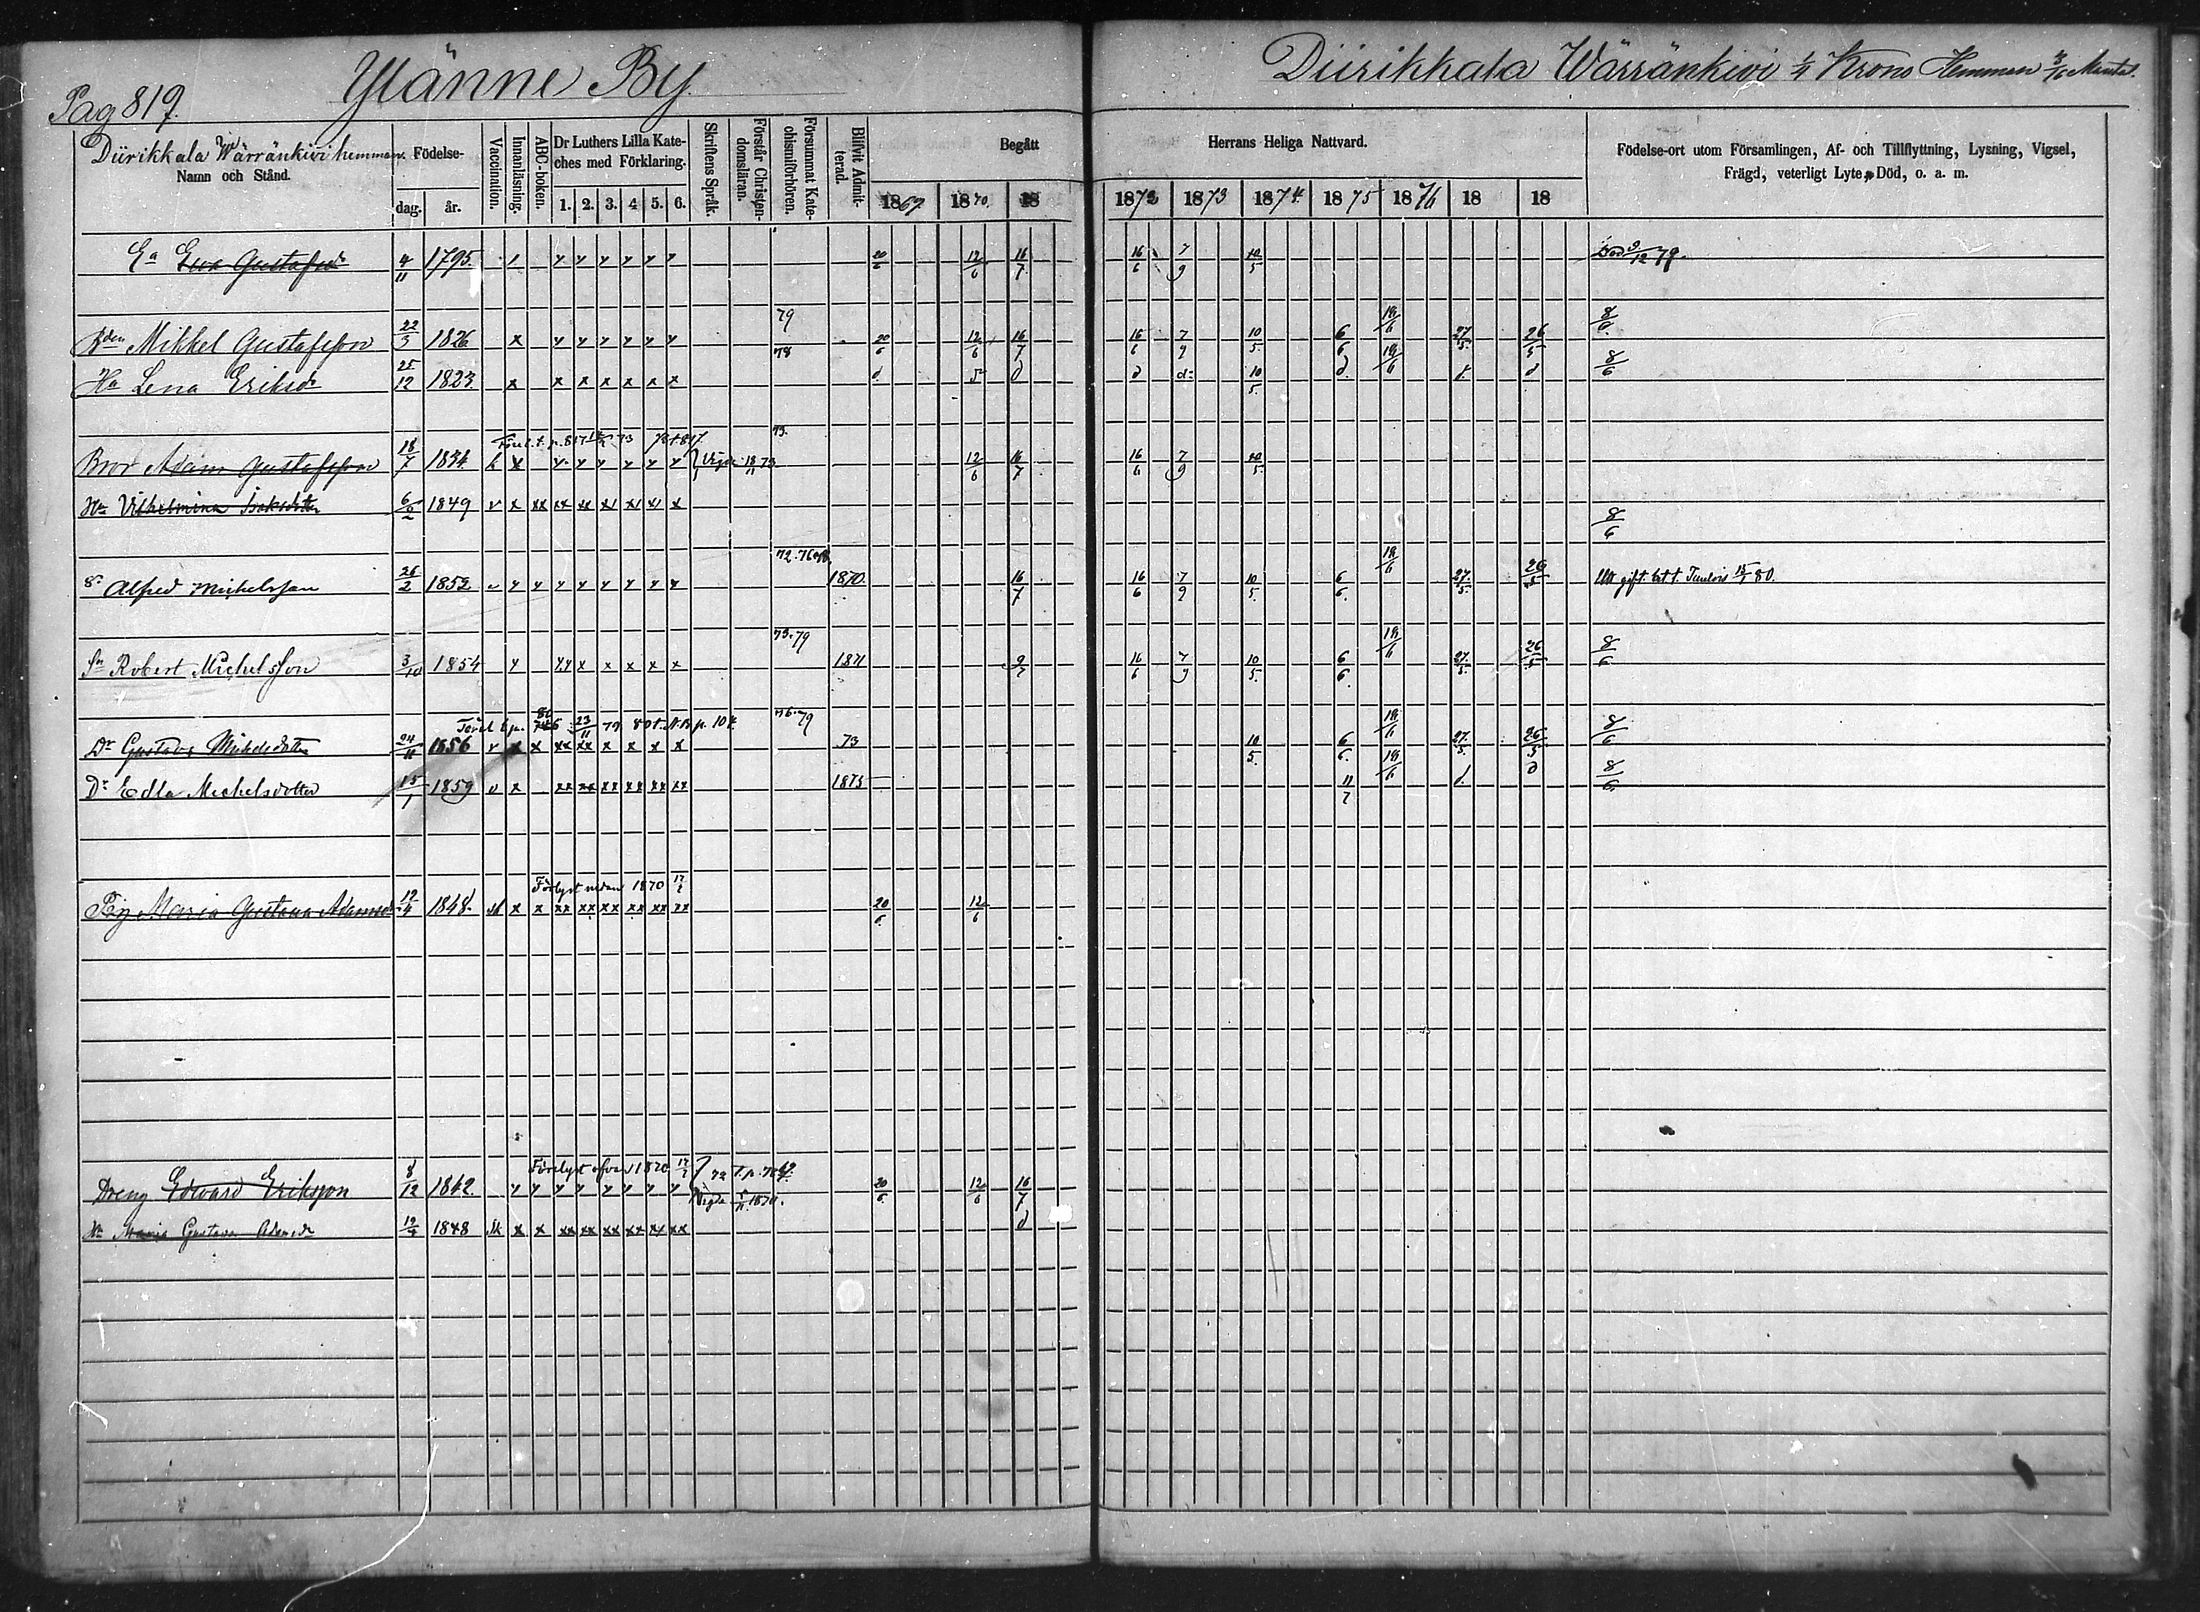 Pag 819.
Yläne By.
Diirikkala Wärränkivi 1/4 Krono Hemman 3/16 Mantal.
Diirikkala Wärränkivi hemman.
Namn och Stånd.
Födelse-
dag. år.
Vaccination.
Innanläsning.
ABC-boken.
Dr Luthers Lilla Kate-
ches med Förklaring.
1. 2. 3. 4 5. 6.
Skriftens Språk.
Förstår Christen-
domsläran.
Försummat Kate-
chismiförhören.
Blifvit Admit-
terad.
Begått
1869. 1870. 18
Herrans Heliga Nattvard.
1872 1873 1874. 1875 1876 18 18
Födelse-ort utom Församlingen, Af- och Tillflyttning, Lysning, Vigsel,
Frägd, veterligt Lyte, Död, o. a. m.
Ea Eva Gustafsdr 4/11 1795 x y y y y y y 20/6 12/6 16/7 16/6 7/9 10/5 Död 9/12 79.
79
Bden Mikkel Gustafsson 22/3 1826 x y y y y y y 20/6 12/6 16/7 16/6 7/9 10/5. 6/6 18/6 27/5. 26/5 8/6.
78
Ha Lena Eriksdr 25/12 1823 x x x x x x x d. d d d: 10/5. d. 18/6 d. d 8/6
73.
Bror Adam Gustafsson 18/7 1834 x y y y y y y 12/6 16/7 16/6 7/9 10/5
Hu Vilhelmina Isaksdotter 6/2 1849 v x xx xx xx x x 8/6
72.76
S. Alfred Michelsson 26/2 1852 v y y y y y y y y 1870 16/7 16/6 7/9 10/5. 6/6. 18/6 27/5. 26/5 15/1 80.
73.79
Sn Robert Michelsson 3/10 1854 y yy x x x x x 1871 9/7 16/6 7/9 10/5. 6/6. 18/6 27/5. 26/5 8/6
23/11 79 p. 104
76.79
Dr Gustava Michelsdotter 24/11 1856 v x x xx xx x x x x 73 10/5. 6/6. 18/6 27/5. 26/5 8/6
Dr Edla Michelsdotter 15/1 1859 v x xx xx xx xx xx xx 1875 11/7 18/6 d. d 8/6
Förlyst nedan 1870 17/7
Pig Maria Gustava Adamsdr 12/4 1848. x x xx xx xx xx xx xx 20/6. 12/6
Förelyst ofvan 1870 17/7
Dreng Edward Eriksson 8/12 1842 y y y y y y y y 20/6 12/6 16/7
Vigde 1870.
Hu Maria Gustava Adamsdr 12/4 1848 x x xx xx xx xx xx xx d